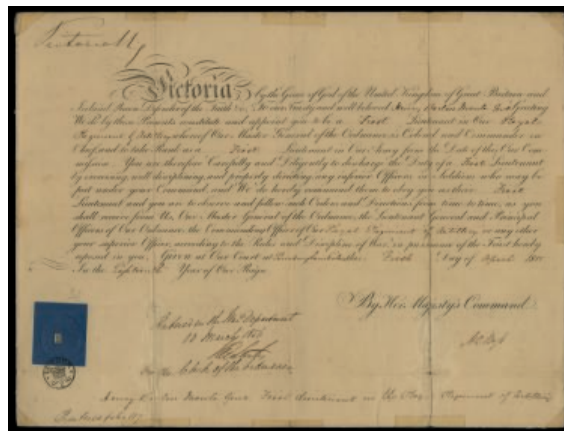 Victoria R
Victoria by the Grace of God of the United Kingdom of Great Britain and
Ireland Queen Defender of the Faith &c. To our Trusty and well beloved Greeting
We do by these Presents constitute and appoint you to be a First Lieutenant in Our Royal
Regiment of Artillery whereof Our Master General of the Ordnance is Colonel and Commander in
Chief and to take Rank as a First Lieutenant in Our Army from the Date of this Our Com-
mission. You are therefore Carefully and Diligently to discharge the Duty of a First Lieutenant
by exercising, well disciplining, and properly directing any inferior Officers or Soldiers who may be
put under your Command, and We do hereby command them to obey you as their First
Lieutenant and you are to observe and follow such Orders and Directions from time to time, as you
shall receive from Us, Our Master General of the Ordnance, the Lieutenant General and Principal
Officers of Our Ordnance, the Commanding Officer of Our Royal Regiment of Artillery or any other
your superior Officer, according to the Rules and Discipline of War, in pursuance of the Trust hereby
reposed in you. Given at Our Court at Day of April
In the Eighteenth Year of Our Reign.
By Her Majesty's Command
Entered in the Department
March
For the Clerk of the Ordnance
Henry First Lieutenant in the Royal Regiment of Artillery